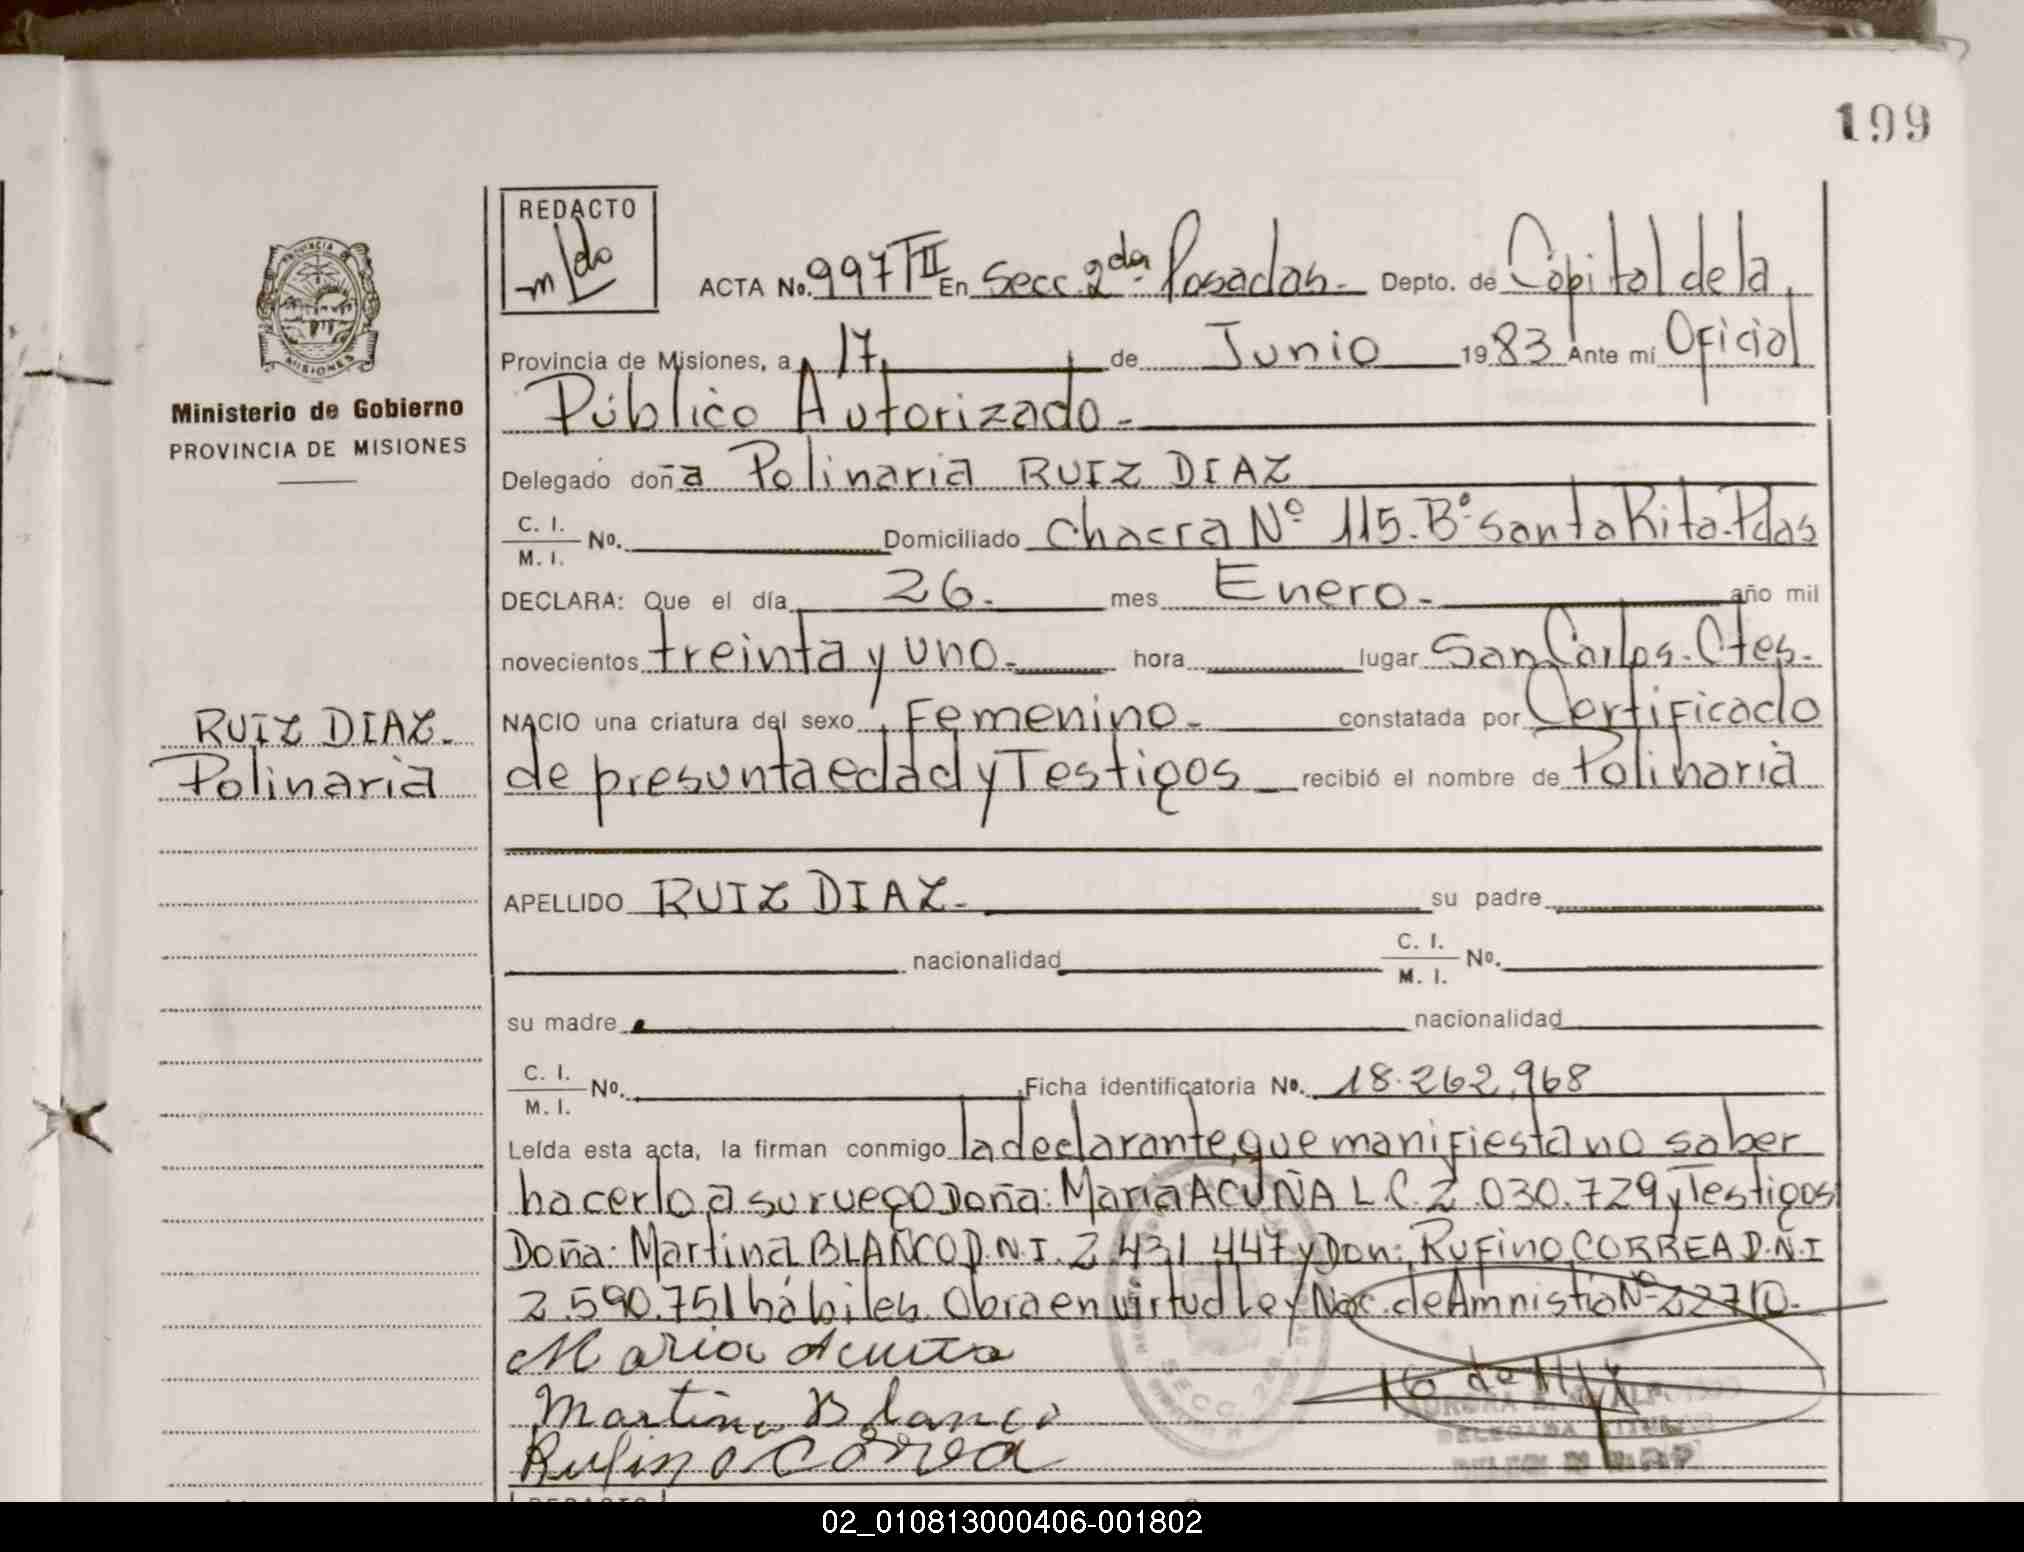 199
REDACTO
ACTA No. 997 TII En Secc. 2da. Posadas.- Depto. de Capital de la
Provincia de Misiones, a 17 de Junio 1983 Ante mí Oficial
Público Autorizado.-
MISIONES
Ministerio de Gobierno
PROVINCIA DE MISIONES
Delegado doña Polinaria RUIZ DIAZ
C. I.
M. I. No. Domiciliado Chacra Nº 115. Bº Santa Rita. Pdas
DECLARA: Que el día 26.- mes Enero.- año mil
novecientos treinta y uno.- hora lugar San Carlos. Ctes.
NACIO una criatura del sexo Femenino.- constatada por Certificado
de presunta edad y Testigos recibió el nombre de Polinaria
RUIZ DIAZ.-
Polinaria
APELLIDO RUIZ DIAZ.- su padre
nacionalidad C. I.
M. I. No.
su madre nacionalidad
C. I.
M. I. No. Ficha identificatoria No. 18.262.968
Leída esta acta, la firman conmigo la declarante, que manifiesta no saber
hacerlo a su ruego Doña: Maria ACUÑA L.C. 2.030.729 y Testigos
Doña: Martina BLANCO D.N.I. 2.431.447 y Don: Rufino CORREA D.N.I
2.590.751 hábiles. Obra en virtud Ley Nac. de Amnistia Nº 22710.-
Maria Acuña
Martina Blanco
Rufino Correa
SECC. 2da
DELEGADA TITULAR
REDACTO
02_010813000406-001802